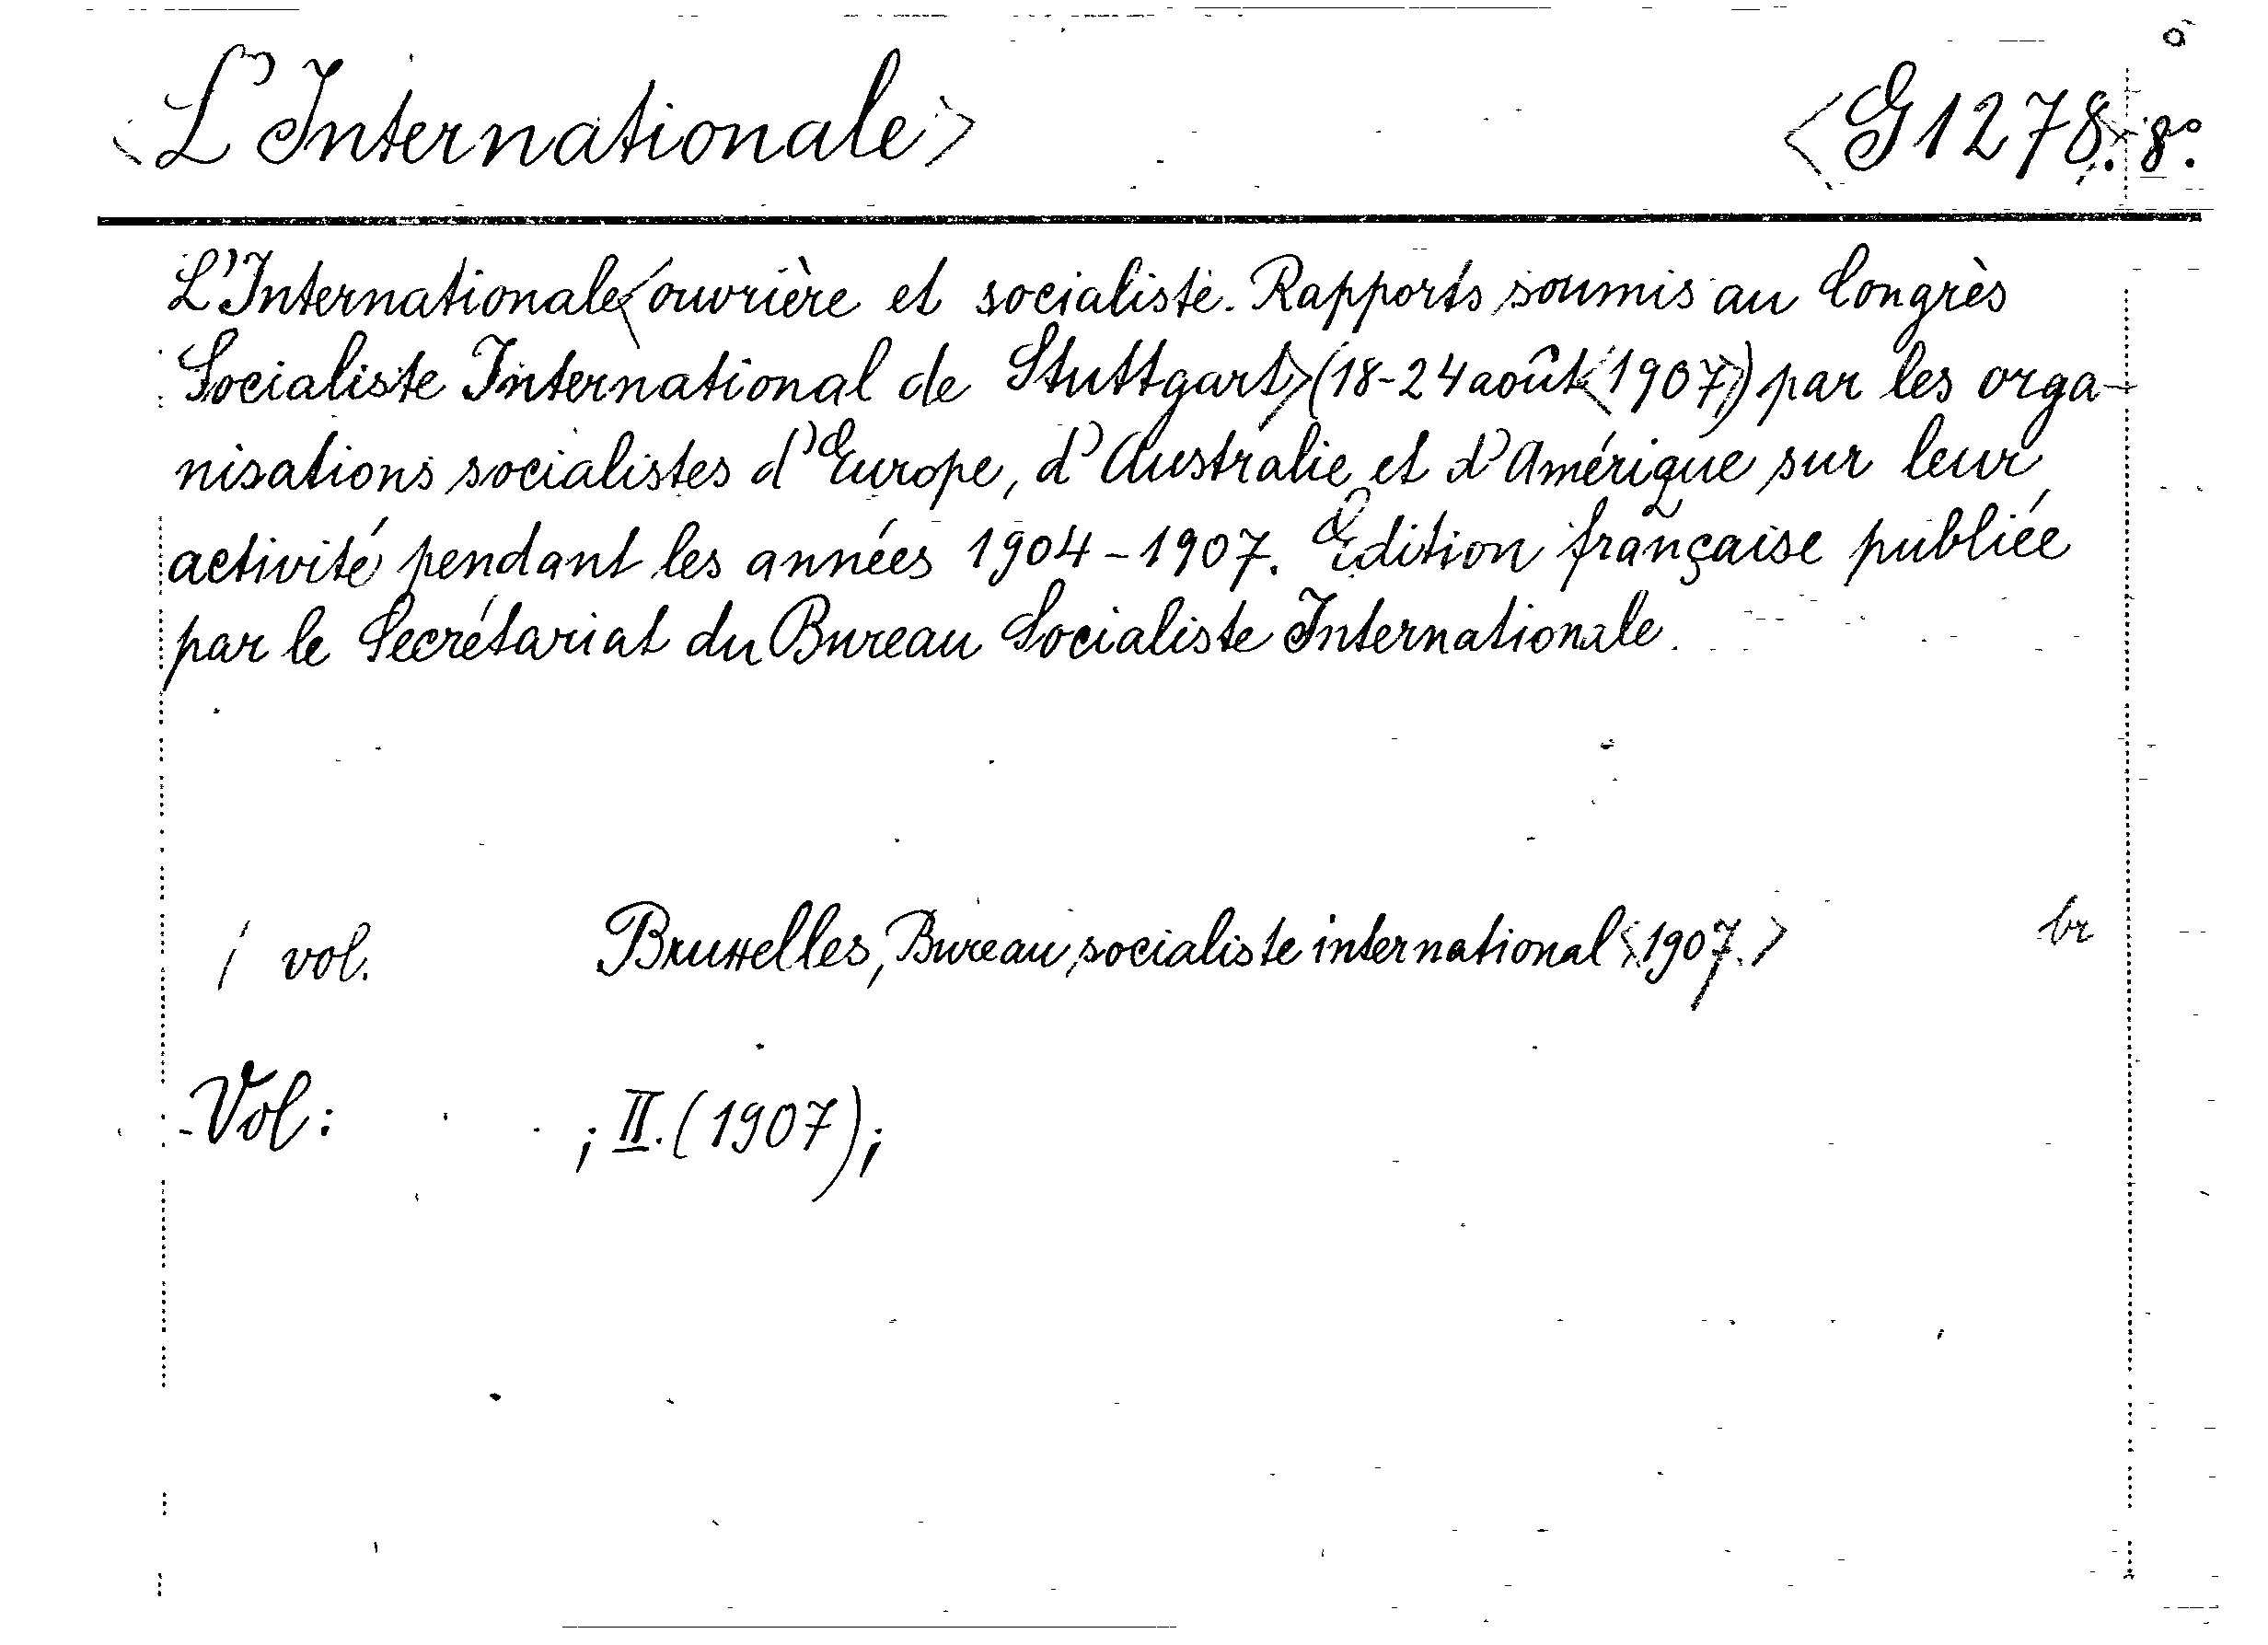 <L'Internationale> <G 1278.> 8°.
L'Internationale <ouvrière et socialiste. Rapports soumis au Congrès
Socialiste International de Stuttgart> (18-24 août <1907>) par les orga-
nisations socialistes d'Europe, d'Australie et d'Amérique sur leur
activité pendant les années 1904-1907. Édition française publiée
par le Secrétariat du Bureau Socialiste Internationale.
1 vol. Bruxelles, Bureau socialiste international <1907.> br
Vol: ; II. (1907);